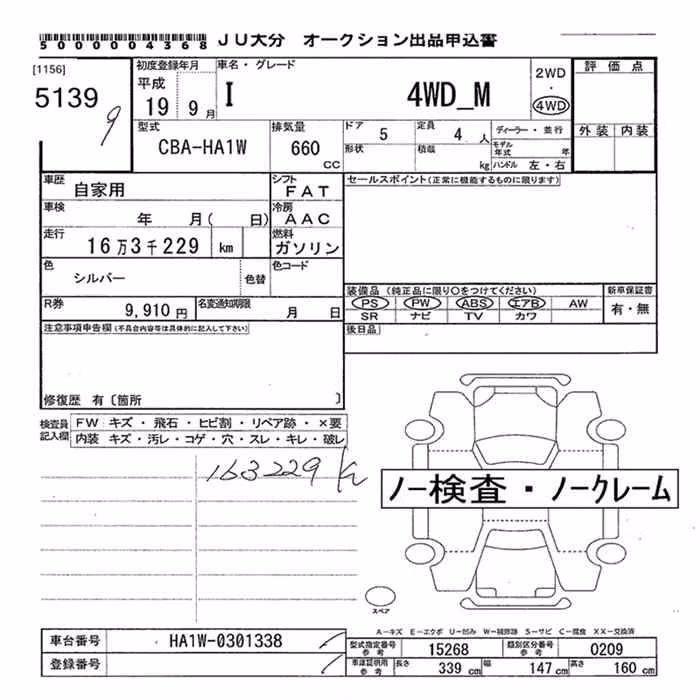 5000004368 JU大分 オークション出品申込書
[1156] 初度登録年月 車名・グレード 2WD 評価点
5139 平成 I 4WD_M ・
9 19 9月 4WD
型式 排気量 ドア 5 定員 4 人 ディーラー・並行 外装 内装
CBA-HA1W 660 CC 形状 積載 kg モデル年式 年
ハンドル 左・右
車歴 自家用 シフト FAT セールスポイント(正常に機能するものに限ります)
車検 年 月( 日) 冷房 AAC
走行 16万3千229 km 燃料 ガソリン
色 シルバー 色替 色コード
装備品(純正品に限り○をつけてください) 新車保証書
R券 9,910円 名変通知期限 月 日 PS PW ABS エアB AW 有・無
SR ナビ TV カワ
注意事項申告欄(不具合内容等は具体的に記入して下さい) 後日品
修復歴 有〔箇所 〕
検査員記入欄 FW キズ・飛石・ヒビ割・リペア跡・×要
内装 キズ・汚レ・コゲ・穴・スレ・キレ・破レ
163229 K
ノー検査・ノークレーム
スペア
A-キズ E-エクボ U-凹み W-補修跡 S-サビ C-腐食 XX-交換済
車台番号 HA1W-0301338 型式指定番号参考 15268 類別区分番号参考 0209
登録番号 車庫証明用参考 長さ 339 cm 幅 147 cm 高さ 160 cm